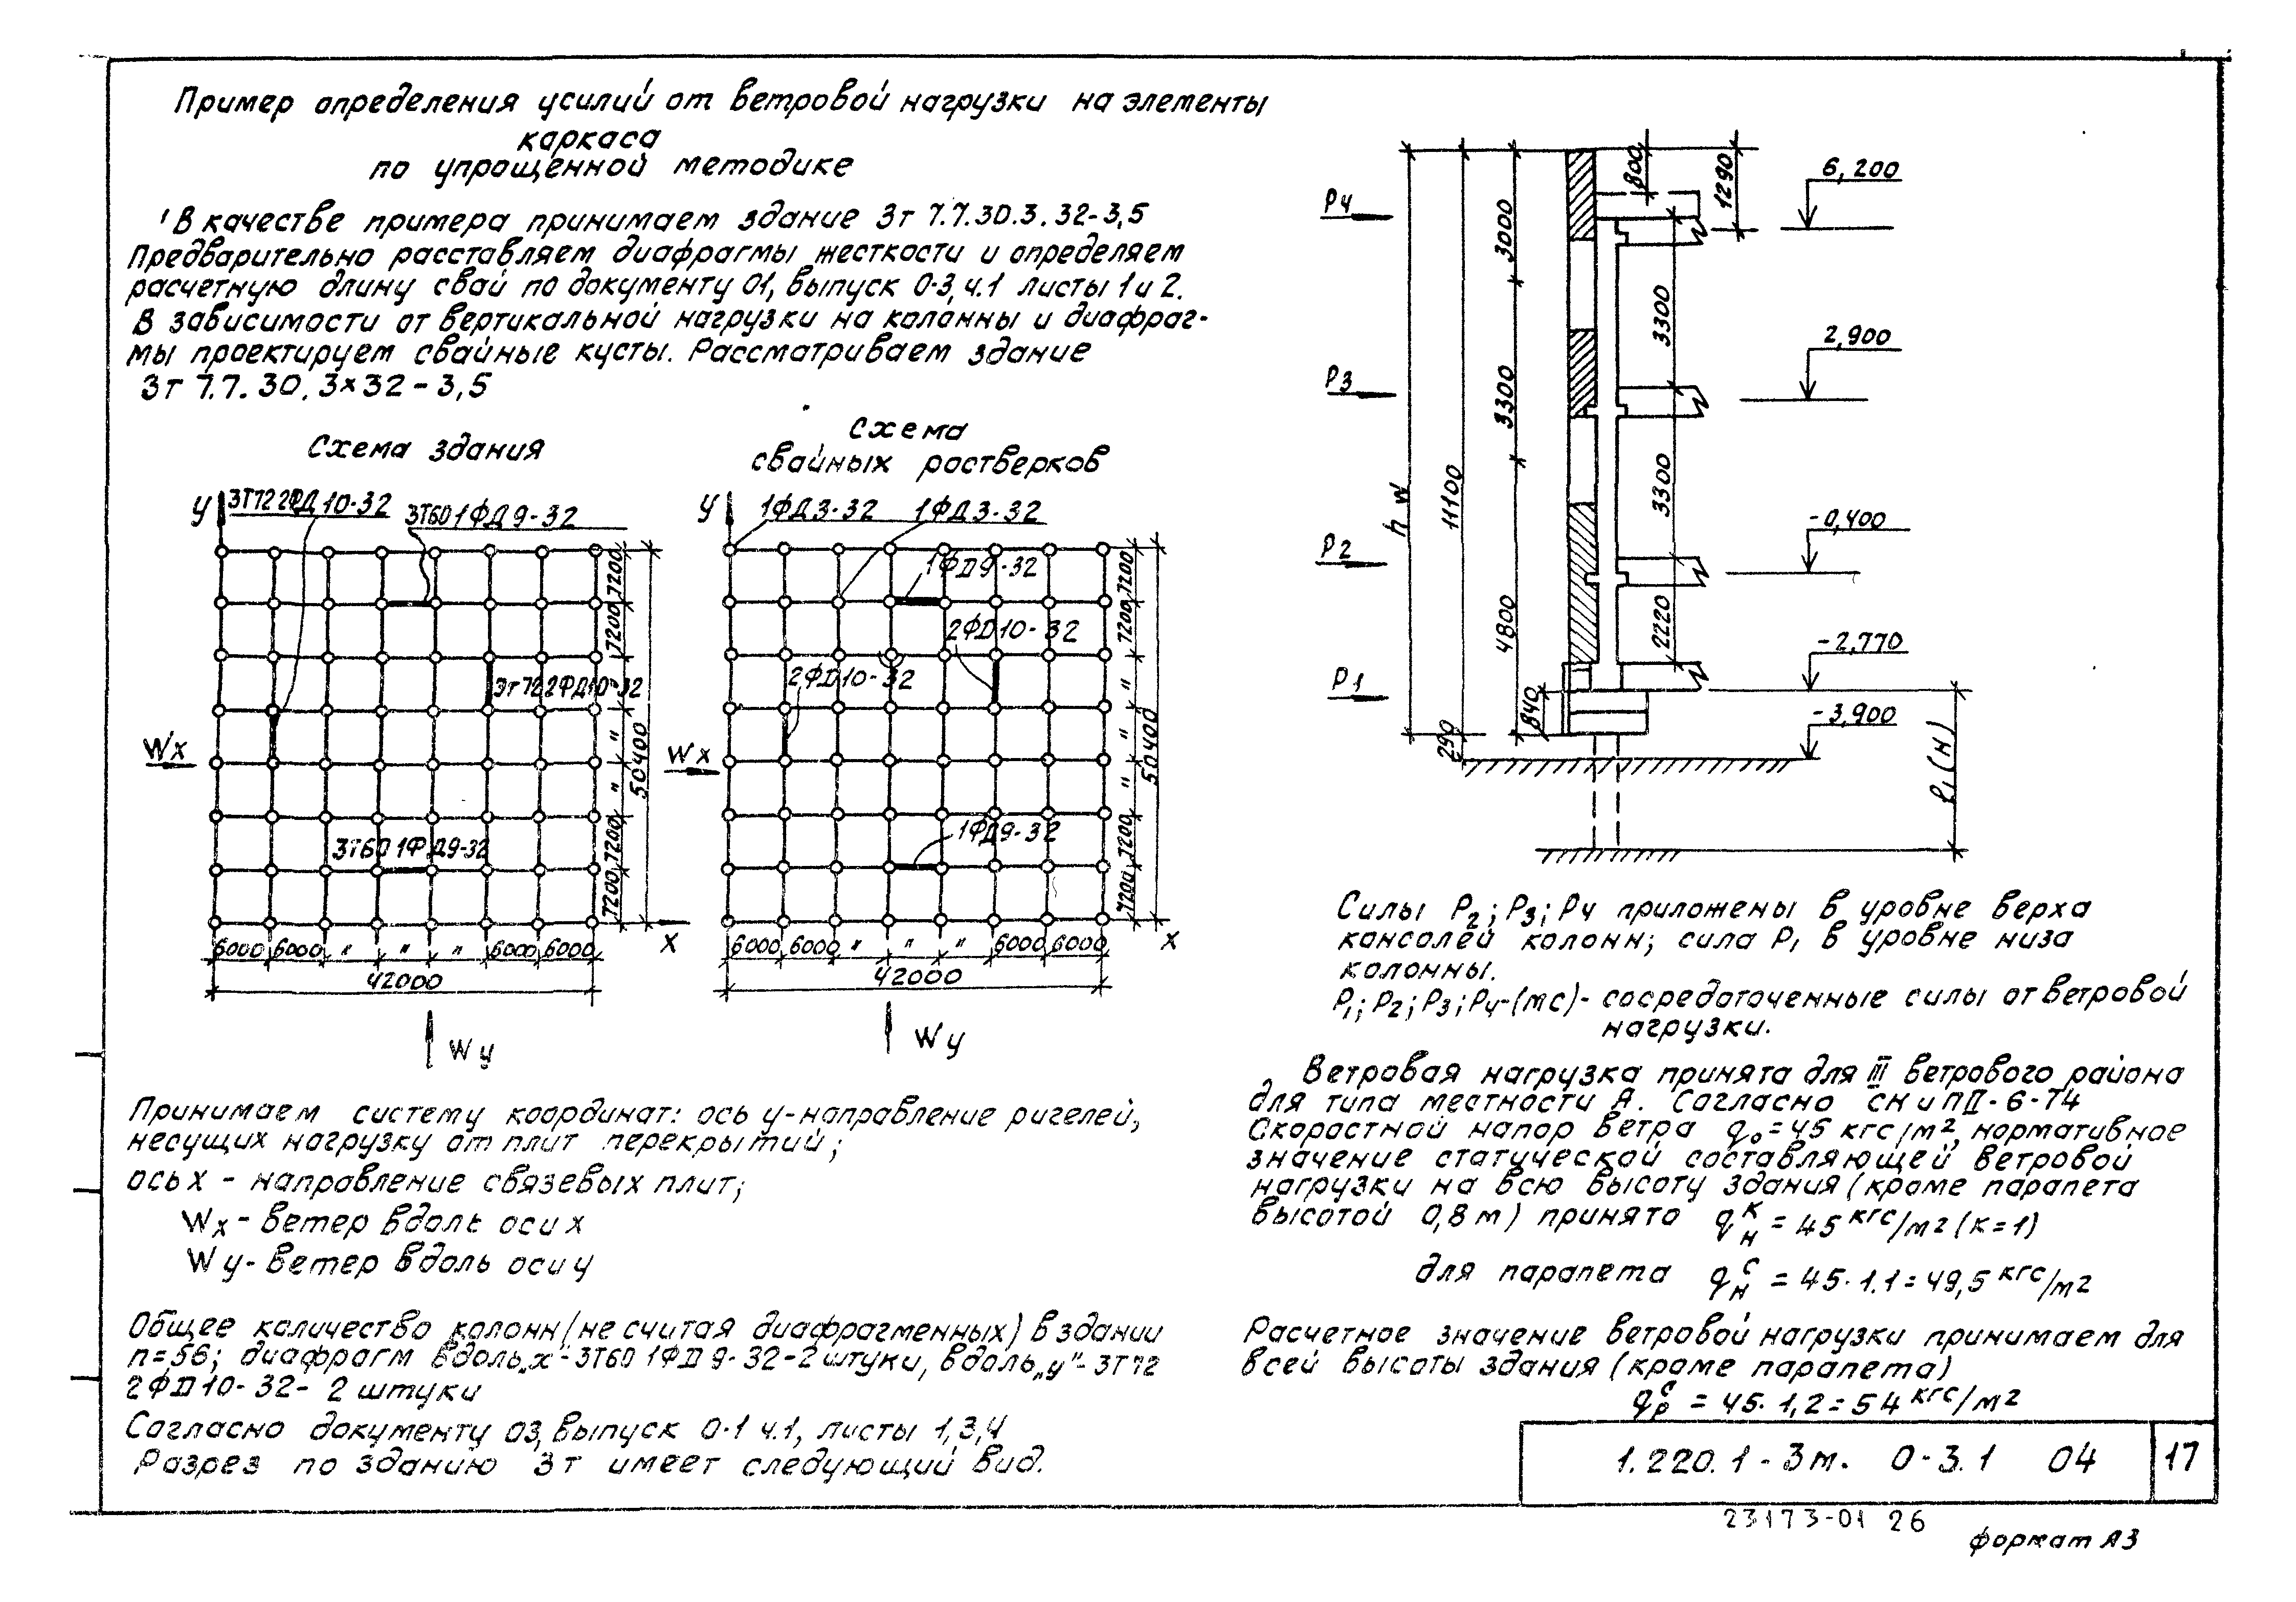 Пример определения усилий от ветровой нагрузки на элементы
каркаса
по упрощенной методике
В качестве примера принимаем здание 3т 7.7.30.3.32-3,5
Предварительно расставляем диафрагмы жесткости и определяем
расчетную длину свай по документу 01, выпуск 0-3, ч.1 листы 1 и 2.
В зависимости от вертикальной нагрузки на колонны и диафраг-
мы проектируем свайные кусты. Рассматриваем здание
3т 7.7.30.3×32-3,5
Схема здания
У
3Т72 2ФД10-32
3Т60 1ФД9-32
7200
7200
3т72 2ФД10-32
Wх
"
"
50400
3Т60 1ФД9-32
7200
7200
6000 6000 " " " 6000 6000
х
42000
Wу
Схема
свайных ростверков
У
1ФД3-32
1ФД3-32
1ФД9-32
7200
7200
2ФД10-32
2ФД10-32
Wх
"
"
"
50400
1ФД9-32
7200
7200
6000 6000 " " " 6000 6000
х
42000
Wу
Принимаем систему координат: ось у-направление ригелей,
несущих нагрузку от плит перекрытий;
ось х - направление связевых плит;
Wх - ветер вдоль оси х
Wу - ветер вдоль оси у
Общее количество колонн (не считая диафрагменных) в здании
n=56; диафрагм вдоль „х"-3Т60 1ФД9-32-2 штуки, вдоль „у"-3Т72
2ФД10-32- 2 штуки
Согласно документу 03, выпуск 0-1 ч.1, листы 1,3,4
Разрез по зданию 3т имеет следующий вид.
Р4
Р3
Р2
Р1
h w
11100
290
3000
3300
4800
840
800
1290
3300
3300
2220
6,200
2,900
-0,400
-2,770
-3,900
ℓ₁(н)
Силы Р2; Р3; Р4 приложены в уровне верха
консолей колонн; сила Р1 в уровне низа
колонны.
Р1; Р2; Р3; Р4-(тс)- сосредоточенные силы от ветровой
нагрузки.
Ветровая нагрузка принята для III ветрового района
для типа местности А. Согласно СНиПII-6-74
Скоростной напор ветра q₀=45 кгс/м², нормативное
значение статической составляющей ветровой
нагрузки на всю высоту здания (кроме парапета
высотой 0,8м) принято qкн = 45 кгс/м² (к=1)
для парапета qсн = 45·1.1=49,5 кгс/м²
Расчетное значение ветровой нагрузки принимаем для
всей высоты здания (кроме парапета)
qср = 45·1,2=54 кгс/м²
1.220.1-3м. 0-3.1 04
17
23173-01 26
формат А3